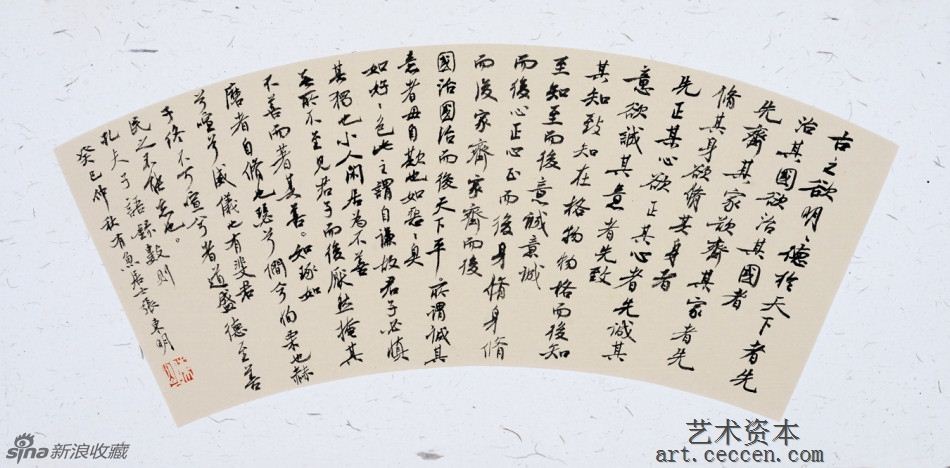 古之欲明德於天下者先
治其國欲治其國者
先齊其家欲齊其家者先
脩其身欲脩其身者
先正其心欲正其心者先誠其
意欲誠其意者先致
其知致知在格物物格而後知
至知至而後意誠意誠
而後心正心正而後身脩身脩
而後家齊家齊而後
國治國治而後天下平所謂誠其
意者毋自欺也如惡〻臭
如好〻色此之謂自謙故君子必慎
其獨也小人閒居為不善
無所不至見君子而後厭然掩其
不善而著其善。如琢如
磨者自脩也瑟兮僩兮恂栗也赫
兮喧兮威儀也有斐君
子終不可諠兮者道盛德至善
民之不能忘也。
孔夫子語錄數則
癸巳仲秋有魚居士張東明
sina新浪收藏
艺术资本
art.ceccen.com